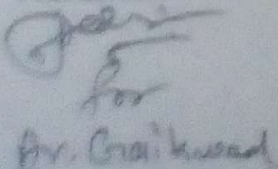 for
Dr. Gaikwad